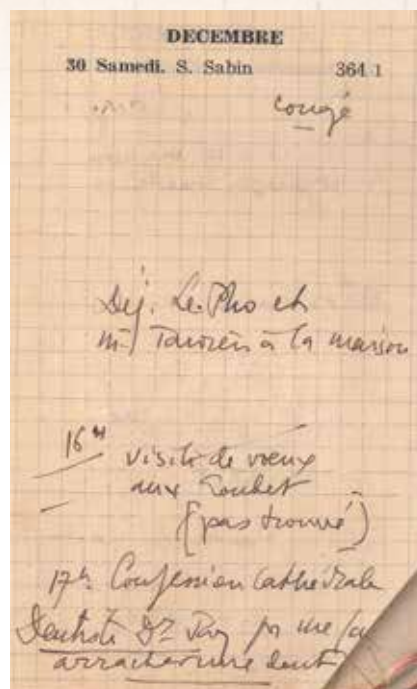 DECEMBRE
30 Samedi. S. Sabin 364 1
congé
Déj. Le Pho et
à la maison
16h visite de vœux
aux
(pas trouvé)
17h Confession Cathédrale
Dentiste Dr pr me
arracher une dent